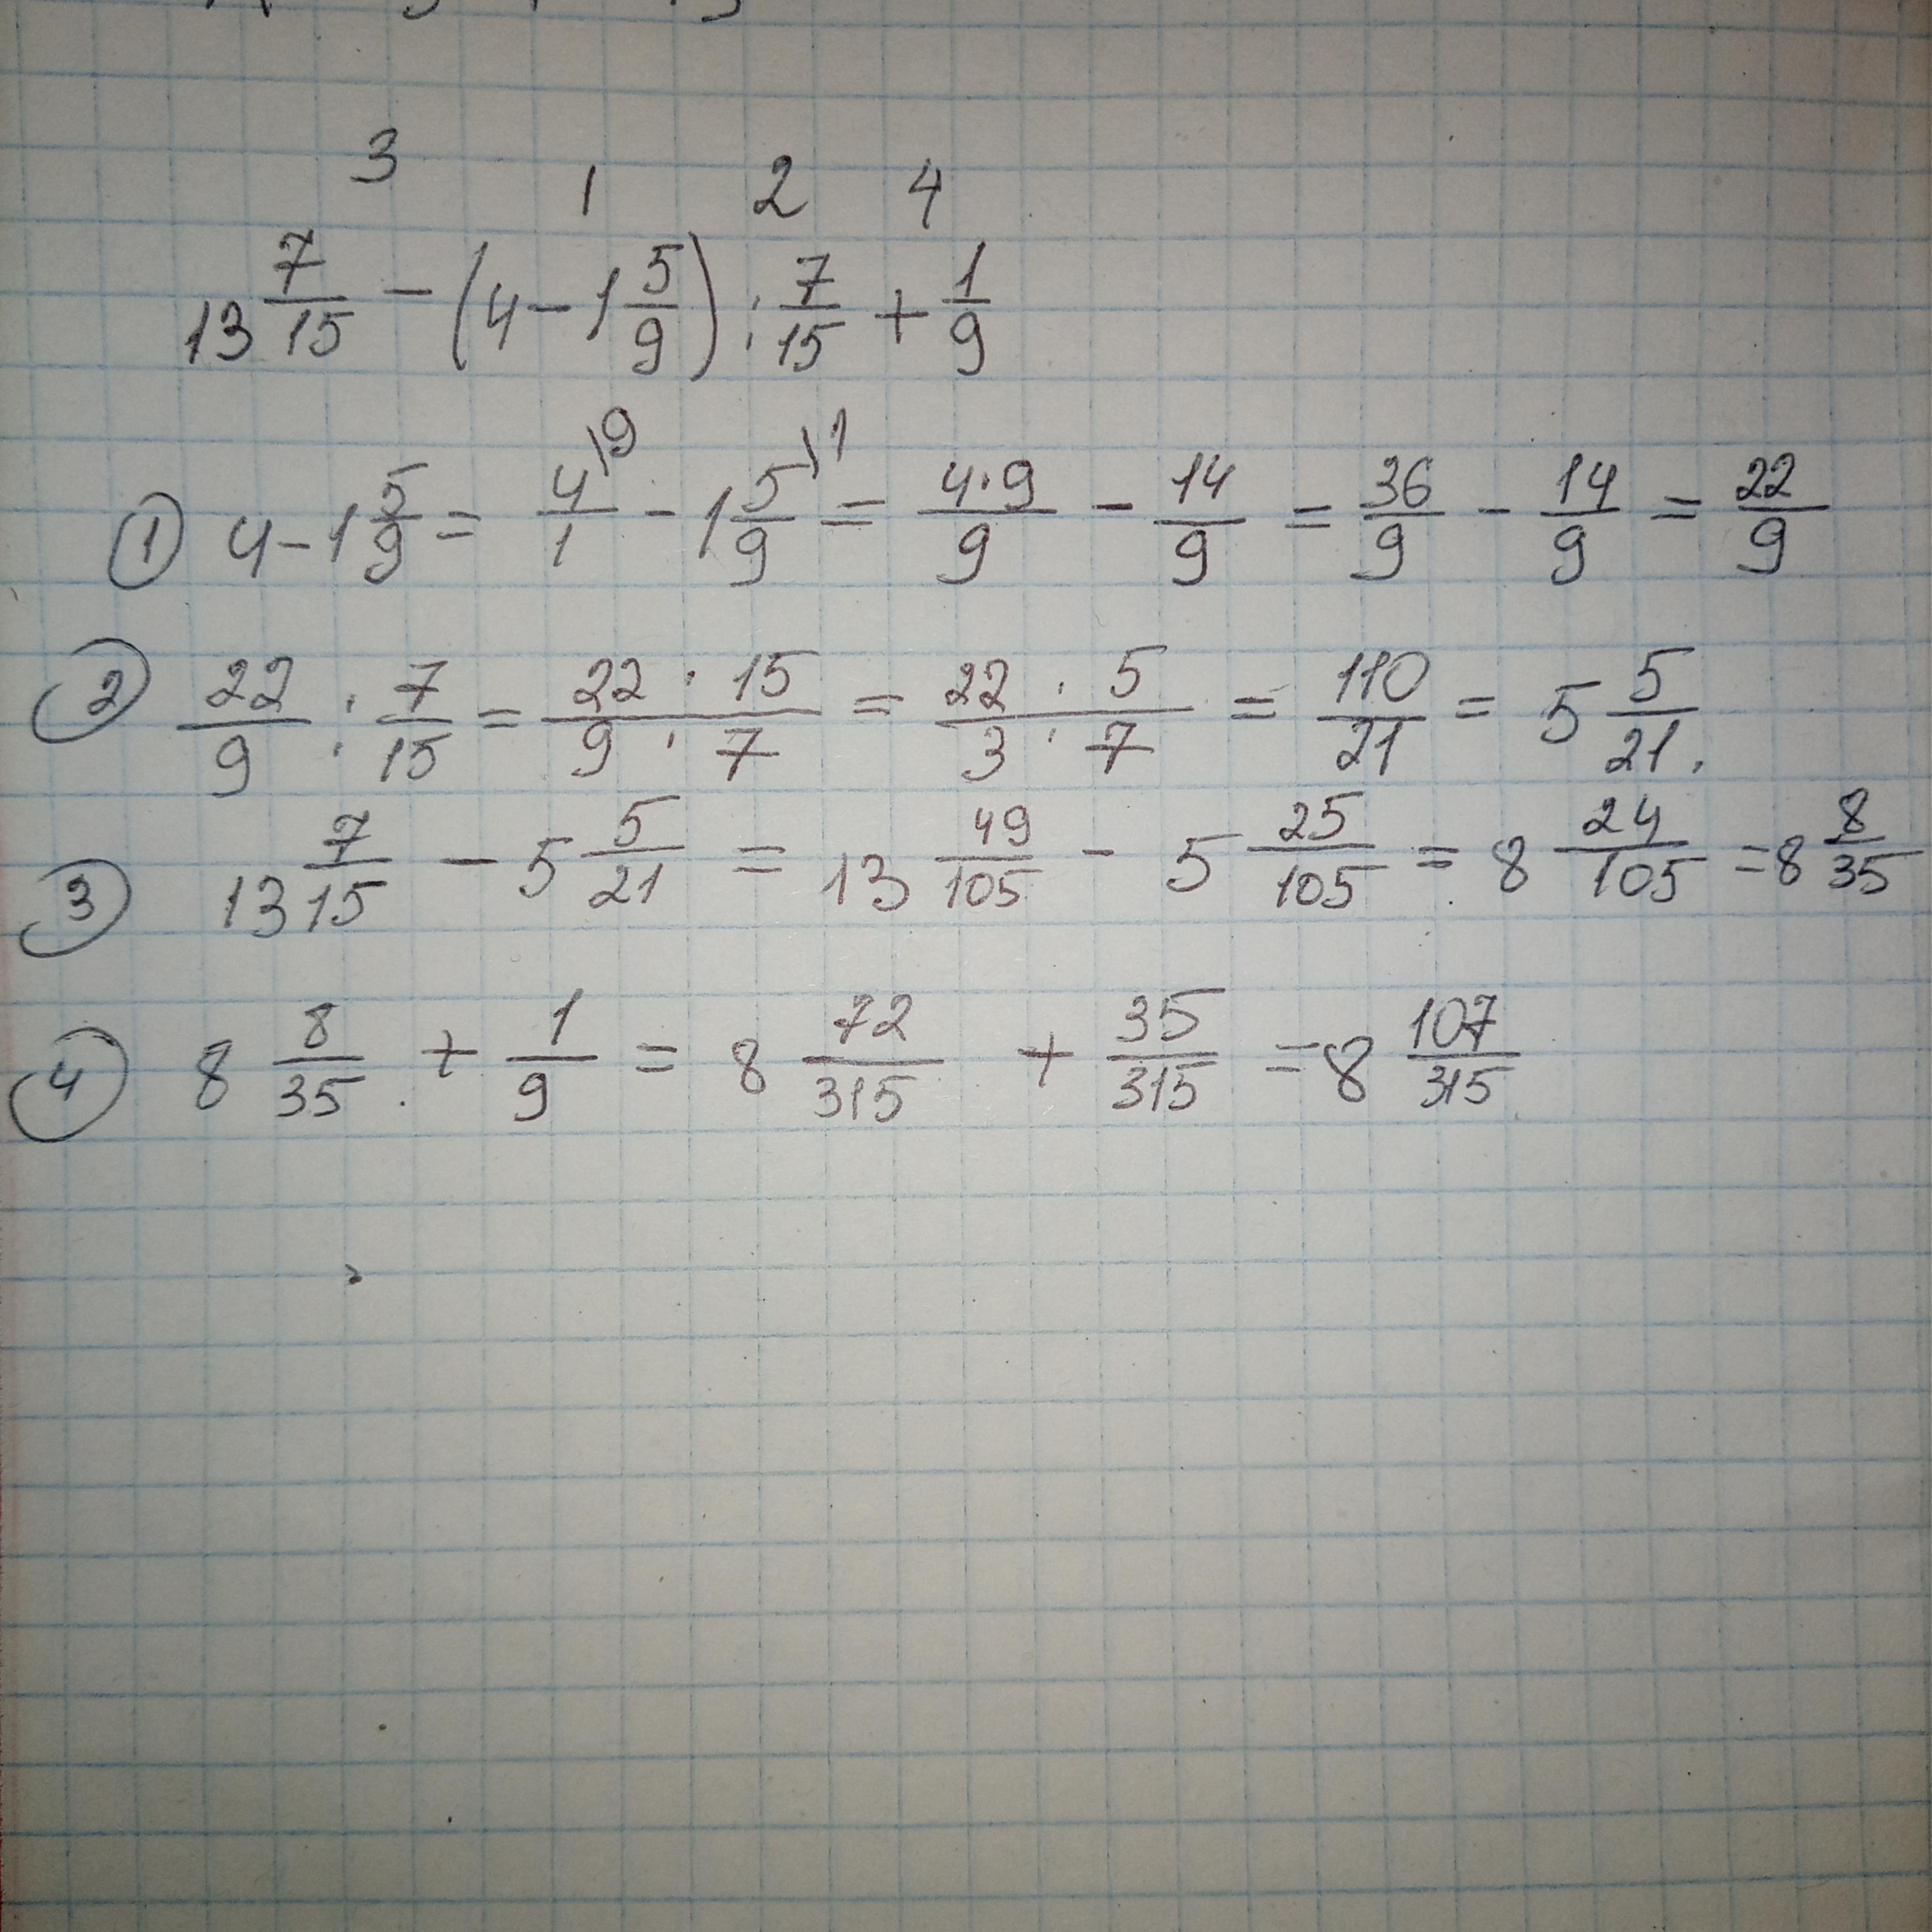 3 1 2 4
13 7/15 - (4 - 1 5/9) : 7/15 + 1/9
① 4 - 1 5/9 = 4/1 \9 - 1 5/9 \1 = 4·9/9 - 14/9 = 36/9 - 14/9 = 22/9
② 22/9 : 7/15 = 22 · 15/9 · 7 = 22 · 5/3 · 7 = 110/21 = 5 5/21.
③ 13 7/15 - 5 5/21 = 13 49/105 - 5 25/105 = 8 24/105 = 8 8/35
④ 8 8/35 + 1/9 = 8 72/315 + 35/315 = 8 107/315